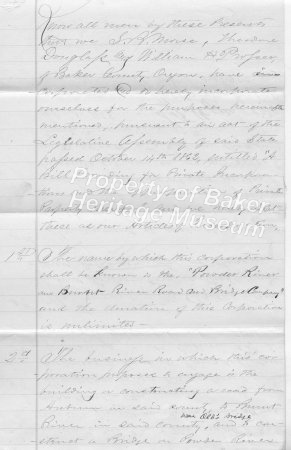 Know all men by these Presents
that we J. H. Morse, Theodore
Douglass & William H. Profser
of Baker County Oregon, have
do hereby incorporate
ourselves for the purposes hereinafter
mentioned, pursuant to an act of the
Legislative Assembly of said State
passed October 14th 1862, entitled "A
bill for Private Incorpora-
tions & of Private
Property
these as our Articles of
Property of Baker
Heritage Museum
1st The name by which this corporation
shall be known is the "Powder River
and Burnt River Road and Bridge Company"
and the duration of this Corporation
is unlimited—
2d The business in which this cor-
poration proposes to engage is the
building & constructing a road from
Auburn in said county to Burnt
near Old's bridge
River in said county, and to con-
struct a Bridge on Powder River